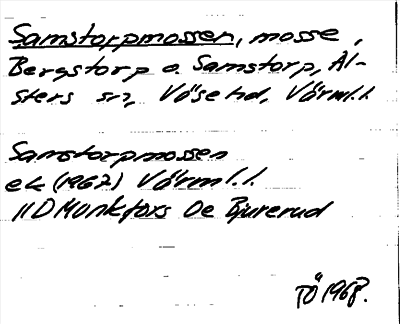 Samstorpmossen, mosse,
Bergstorp o. Samstorp, Äl-
sters sn, Väse hd, Värml. l.
Samstorpmossen
ek (1962) Värml. l.
11D Munkfors 0e Bjurerud
TÖ 1968.